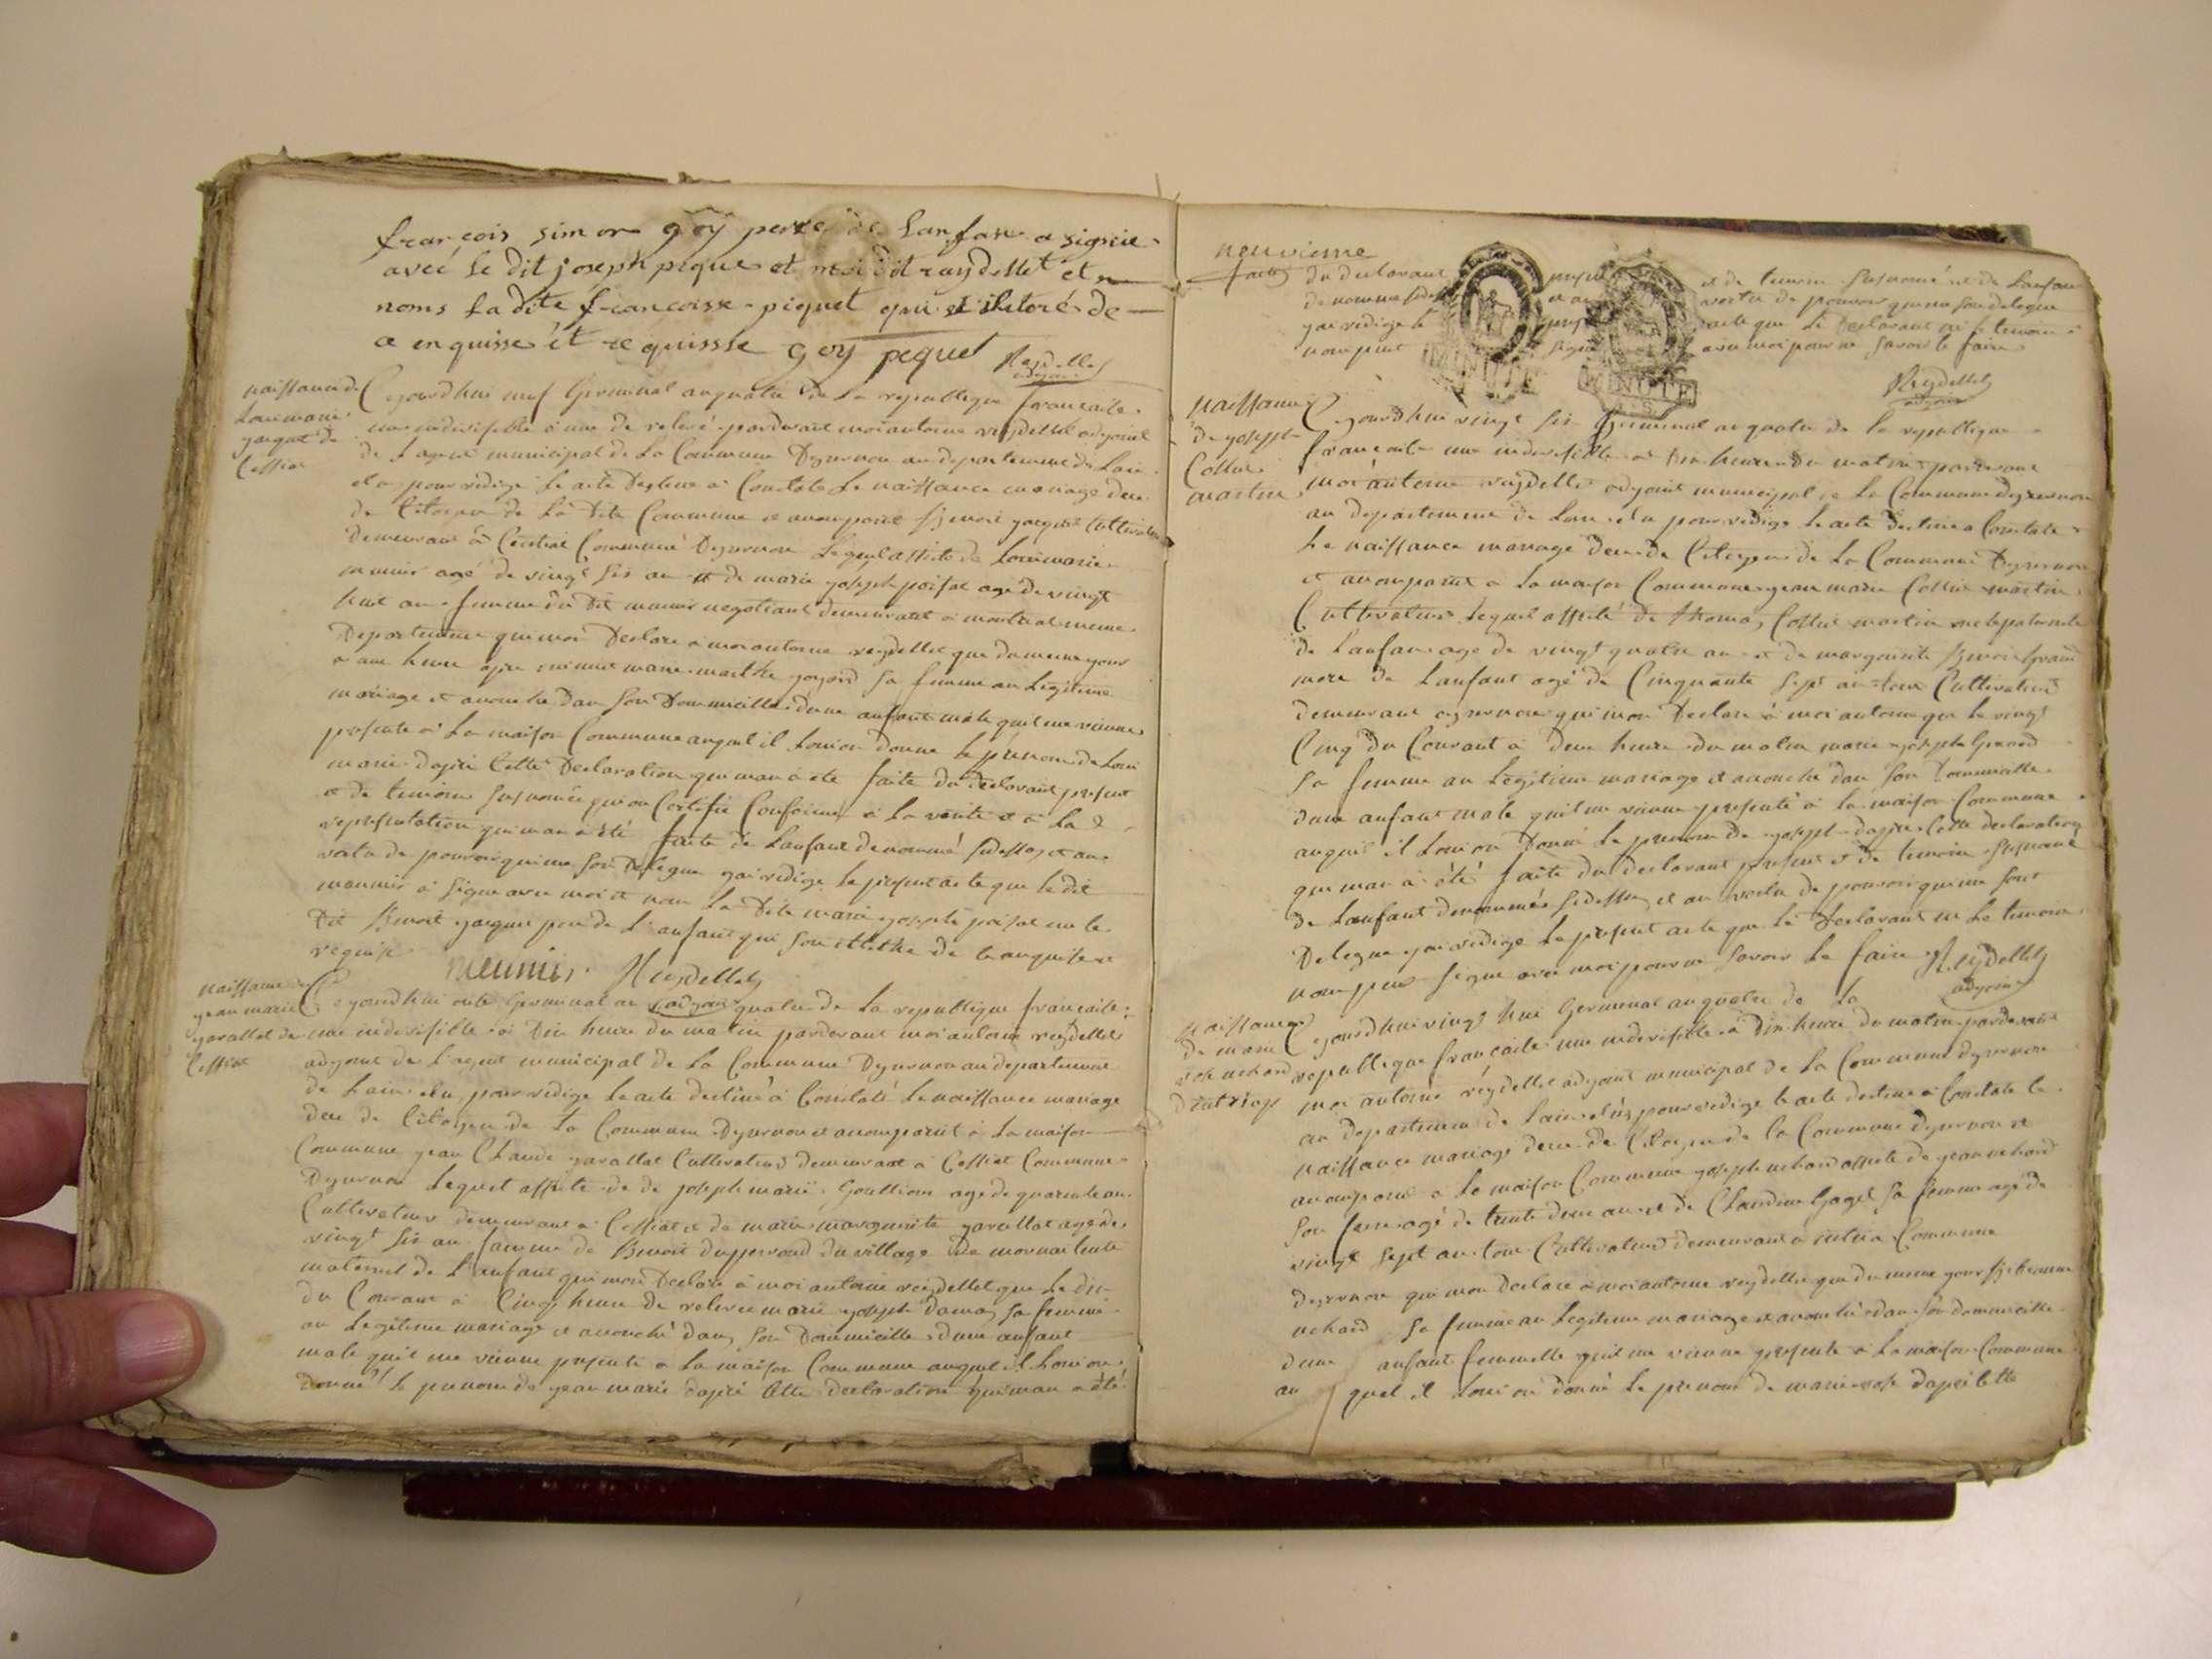 francois simon goy pere de lanfan a signié
avec le dit joseph pique et moi dit raydellet et n
noms la dite francoisse piquet qui et iliteré de
a enquisse et requissse goy pequet Reydellet
adjoint
naissance de
Louimarie
jacquet de
Cessiat
Cejourdhui neuf Germinal anquatre de La republique francaise
une indivisible a une de relevé pardevant moi antoine reydellet adjoint
de Lagent municipal de La Commune Dysernon au departement de Lain
elu pour redige Le acte Destine a Constate Le naissance mariage dece
de Citoyen de La Dite Commune et a comparut Benoit jacquet Cultivateur
demeurant a Cessiat Commune Dysernon Lequel assisté de Louimarie
munier agé de vingt sis an et de marie joseph poisat agé de vingt
huit an femme du Dit munier negotiant demeurant a montreal meme
Departement qui mon Declare a moi antoine reydellet que du meme jour
a une heure apre minuit marie marthe goyard sa femme an Legitime
mariage et acouche dan son Dommicille dune anfant male quil me vienne
presente a La maison Commune auquel il Loui on donne Le prenom de Loui
marie dapré Cette Declaration qui man a ete faite du declarant present
et de temoins susnomée qui on Certifie Conforme a La verité et a La
representation qui man a été faite de Lanfant denommé sidessus et an
vertu de pouvoir qui me son delegue jai redige Le present acte que le dit
meunier a signe avec moi et non La Dite marie joseph poisat ni le
dit Benoit jacquet pere de L anfant qui son illethe de ce anquise et
requise meunier Reydellet
adjoint
naissance de
jean marie
javallat de
Cessiat
Cejourdhui onse Germinal an quatre de La republique francaise
une indivisible a Dix heure du matin pardevant moi antoine reydellet
adjoint de Lagent municipal de La Commune Dysernon au departement
de Lain elu pour redige Le acte destiné a Constaté Le naissance mariage
dece de Citoyen de La Commune Dysernon et a comparut a La maison
Commune jean Claude javallat Cultivateur demeurant a Cessiat Commune
Dysernon Lequel assisté de de joseph marie Gouttion age de quarante an
Cultivateur demeurant a Cessiat et de marie margueritte javallat age de
vingt sis an famme de Benoit dupperroud du village de mornai tente
maternel de L anfant qui mon Declare a moi antoine reydellet que Le dix
du Courant a Cinq heure de relevee marie joseph damas sa femme
an Legitime mariage et acouché dans son Dommicille dune anfant
male quil me vienne presenté a La maison Commune auquel il Loui on
donné Le prenom de jean marie dapré Cette declaration qui man a été
neuvieme
faite du declarant present et de temoin susnomé et de Lanfan
de nomme side et an vertu de pouvoir qui me son delegue
jai redige le present acte que Le Declarant ni Le temoin
nom peut signe avec moi pour ne savoir Le faire
Reydellet
adjoint
Naissance
de joseph
Collet
martin
Cejourdhui vingt sis Germinal an quatre de la republique
francaise une indivisible a dix heure du matin pardevant
moi antoine reydellet adjoint municipal de La Commune dysernon
au departement de Lain elu pour redige Le acte destine a Constate
Le naissance mariage dece de Citoyen de La Commune Dysernon
et a comparut a La maison Commune jean marie Collet martin
Cultivateur Lequel assisté de thomas Collet martin oncle paternel
de Lanfan age de vingt quatre an et de marguerite Benoit grand
mere de Lanfant agé de Cinquante sept an tous Cultivateur
demeurant a ysernon qui mon Declare a moi antoine que Le vingt
Cinq du Courant a deux heure du matin marie joseph Girard
sa femme an Legitime mariage et acouche dan son Dommicille
dune anfant male quil me vienne presenté a la maison Commune
auquel il Loui on Donné Le prenom de joseph dapre Cette declaration
qui man a été faite du declarant present et de temoin susnomé
de Lanfant denommés sidessus et an vertu de pouvoir qui me sont
Delegue jai redige Le present acte que Le Declarant ni Le temoin
nom peut signe avec moi pour ne savoir Le faire Reydellet
adjoint
Naissance
de marie
rose uchard
Cejourdhui vingt huit Germinal an quatre de La
republique francaise une indivisible a Dix heure du matin pardevant
moi antoine reydellet adjoint municipal de La Commune dysernon
au departement de Lain elu pour redige Le acte destine a Constate Le
naissance mariage dece de Citoyen de La Commune dysernon et
a comparut a La maison Commune joseph uchard assisté de jean uchard
son frere agé de trente deux an et de Claudine Gagel sa femme agé de
vingt sept an tous Cultivateur demeurant a intria Commune
dysernon qui mon declare a moi antoine reydellet que du meme jour
uchard sa femme an Legitime mariage et acouché dan son dommicille
dune anfant femmelle quil me vienne presente a La maison Commune
au quel il Loui on donné Le prenom de marie rose dapré Cette